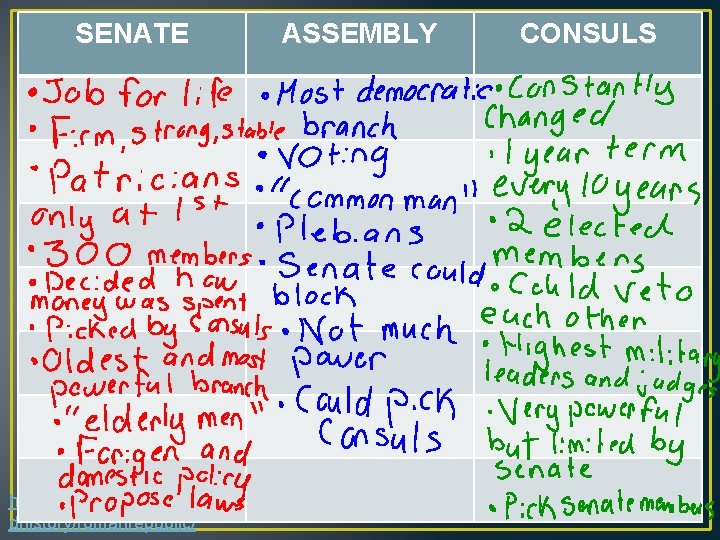 SENATE
ASSEMBLY
CONSULS
• Job for life
• Firm, strong, stable
• Patricians
only at 1st
• 300 members
• Decided how
money was spent
• Picked by Consuls
• Oldest and most
powerful branch
• "elderly men"
• Forigen and
domestic policy
• Propose laws
• Most democratic
branch
• Voting
• "common man"
• Plebians
• Senate could
block
• Not much
power
• Could pick
Consuls
• Constantly
Changed
• 1 year term
every 10 years
• 2 elected
members
• Could veto
each other
• Highest military
leaders and judges
• Very powerful
but limited by
senate
• Pick senate members